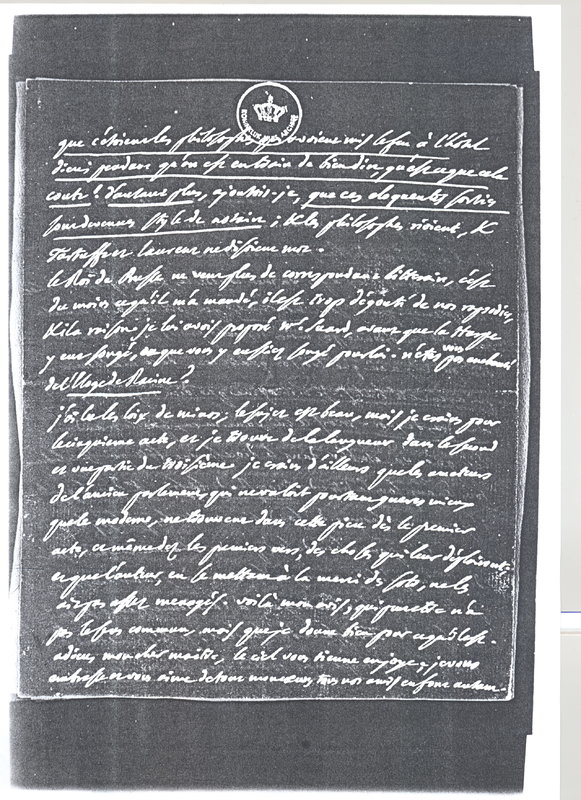 que c'étoient les philosophes qui avoient mis le feu à l'hôtel
dieu; pendant qu'on est en train de bien dire, qu'est ce que cela
coute? d'autant plus, ajoutoit-je, que ces eloquentes sorties
sont devenues style de notaire; & les philosophes rioient, &
Tartuffe et Laurent ne disoient mot.
le Roi de Prusse ne veut plus de correspondance litteraire, c'est
du moins ce qu'il m'a mandé, il est trop dégouté de nos rapsodies,
& il a raison; je lui avois proposé Mr Suard, avant que la Harpe
y eut songé, ou que vous y eussiez songé pour lui. n'etes vous pas enchanté
de l'Eloge de Racine?
j'ai lu les loix de minos; le sujet est beau, mais je crains pour
le cinquieme acte, et je trouve de la langueur dans le second
et une partie du troisieme. je crains d'ailleurs que les amateurs
de l'ancien parlement, qui ne valoit pourtant gueres mieux
que le moderne, ne trouvent dans cette piece dès le premier
acte, et même dès les premiers vers, des choses qui leur déplairont
et que l'auteur, en se mettant à la merci des sots, ne les
ait pas assez menagés. voilà mon avis, qui peut etre n'est
pas le sens commun, mais que je donne bien pour ce qu'il est.
adieu, mon cher maitre, le ciel vous tienne en joye; je vous
embrasse et vous aime de tout mon cœur, tous nos amis en font autant.